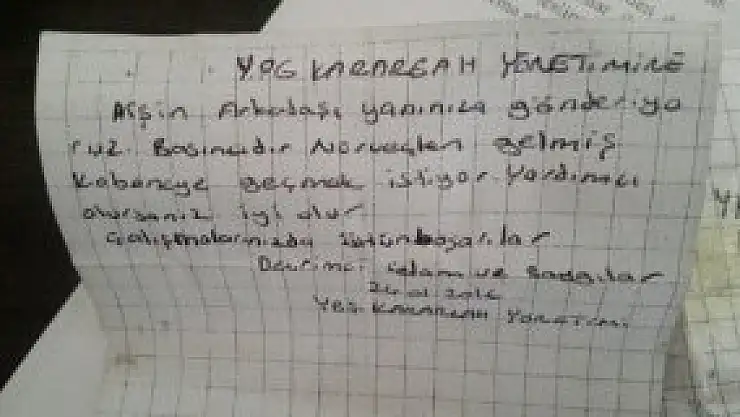 YPG KARARGAH YÖNETİMİNE
Afşin Arkadaşı yanınıza gönderiyo
ruz. Basıncıdır Norveçten gelmiş
Kobaneye geçmek istiyor. Yardımcı
olursanız iyi olur
Çalışmalarınızda üstün başarılar
Devrimci selam ve saygılar
YPG KARARGAH YÖNETİMİ